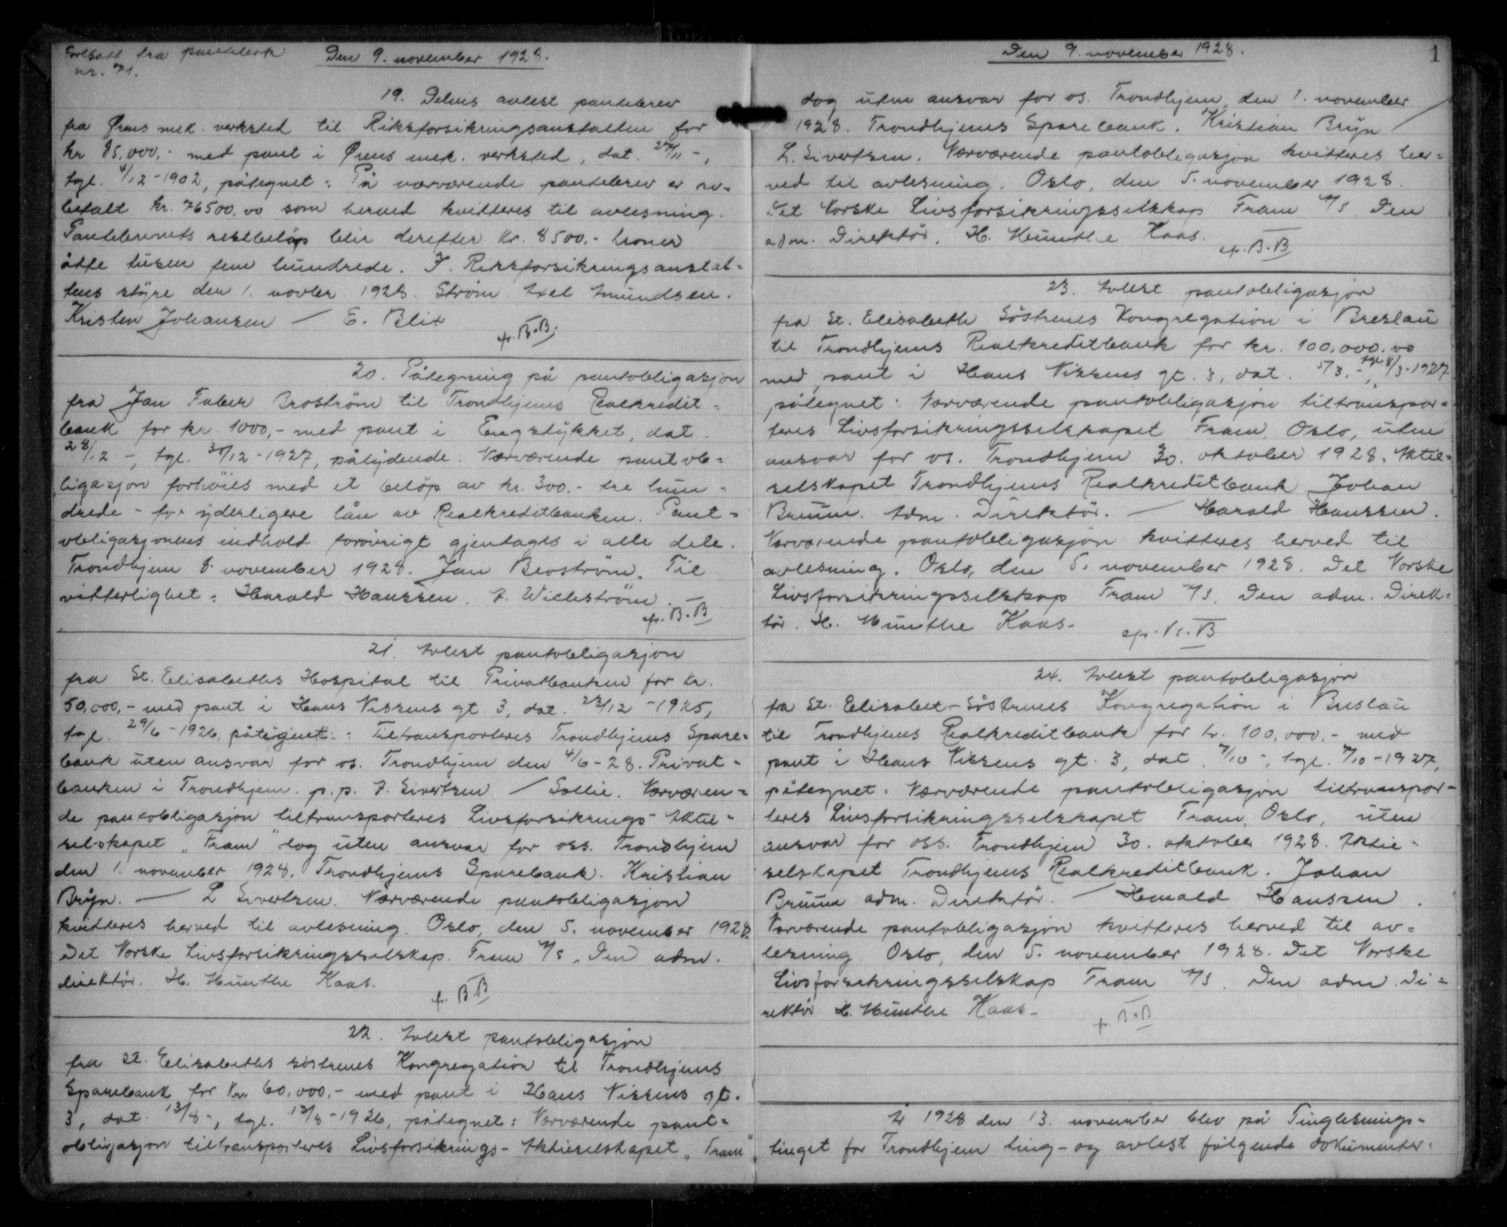 Fortsatt fra pantebok
nr. 71.
Den 9. november 1928.
19. Delvis avlest pantebrev
fra Ørens mek. verksted til Riksforsikringsanstalten for
kr 85,000,- med pant i Ørens mek. verksted, dat. 27/11 -,
tgl. 4/12 - 1902, påtegnet: På nærværende pantebrev er av-
betalt kr. 76500.00 som herved kvitteres til avlesning.
Pantebrevets restbeløp blir derefter kr. 8500,- kroner
åtte tusen fem hundrede. I Riksforsikringsanstal-
tens styre den 1. novbr 1928. Strøm Axel Amundsen.
Kristen Johansen / E. Blix
20. Påtegning på pantobligasjon
fra Jan Faber Broström til Trondhjems Realkredit-
bank for kr. 1000,- med pant i Engstykket, dat.
28/12 -, tgl. 30/12 - 1927, pålydende. Nærværende pantob-
ligasjon forhöies med et beløp av kr. 300.- tre hun-
drede - for yderligere lån av Realkreditbanken. Pant-
obligasjonens indhold forövrigt gjentages i alle dele.
Trondhjem 8. november 1928. Jan Broström. Til
vitterlighet: Harald Hanssen. F. Wichström
21. Avlest pantobligasjon
fra St. Elisabeths Hospital til Privatbanken for kr.
50,000,- med pant i Hans Nissens gt. 3, dat. 22/12 - 1925,
tgl. 29/6 - 1926, påtegnet: Tiltransporteres Trondhjems Spare-
bank uten ansvar for os. Trondhjem den 4/6 - 28. Privat-
banken i Trondhjem. p.p. F. Sivertsen / Sollie. Nærværen-
de pantobligasjon tiltransporteres Livsforsikrings-Aktie-
selskapet „Fram" dog uten ansvar for oss. Trondhjem
den 1. november 1928. Trondhjems Sparebank. Kristian
Bryn. — L Sivertsen. Nærværende pantobligasjon
kvitteres herved til avlesning. Oslo, den 5. november 1928.
Det Norske Livsforsikringsselskap Fram A/S. Den adm.
direktör. H. Munthe Kaas.
22. Avlest pantobligasjon
fra St. Elisabeths søstrenes Kongregation til Trondhjems
Sparebank for kr 60,000,- med pant i Hans Nissens gt.
3, dat. 13/8 -, tgl. 17/8 - 1926, påtegnet: Nærværende pant-
obligasjon tiltransporteres Livsforsikrings-Aktieselskapet „Fram"
Den 9. november 1928.
1
dog uten ansvar for os. Trondhjem, den 1. november
1928. Trondhjems Sparebank. Kristian Bryn /
L. Sivertsen. Nærværende pantobligasjon kvitteres her-
ved til avlesning. Oslo, den 5. november 1928.
Det Norske Livsforsikringsselskap Fram A/S. Den
adm. Direktör. H. Munthe Kaas.
23. Avlest pantobligasjon
fra St. Elisabeth Söstrenes Kongregation i Breslau
til Trondhjems Realkreditbank for kr. 100.000.00
med pant i Hans Nissens gt. 3, dat. 5/3. -, tgl 8/3 - 1927
påtegnet: Nærværende pantobligasjon tiltranspor-
teres Livsforsikringsselskapet Fram, Oslo, uten
ansvar for os. Trondhjem 30. oktober 1928. Aktie-
selskapet Trondhjems Realkreditbank Johan
Bruun. Adm. Direktör. — Harald Hanssen.
Nærværende pantobligasjon kvitteres herved til
avlesning. Oslo, den 5. november 1928. Det Norske
Livsforsikringsselskap Fram A/S. Den adm. Direk-
tör. H. Munthe Kaas.
24. Avlest pantobligasjon
fra St. Elisabet-Söstrenes Kongregation i Breslau
til Trondhjems Realkreditbank for kr. 100,000.- med
pant i Hans Nissens gt. 3, dat. 7/10 -, tgl. 7/10 - 1927,
påtegnet. Nærværende pantobligasjon tiltranspor-
teres Livsforsikringsselskapet Fram, Oslo, uten
ansvar for oss. Trondhjem 30. oktober 1928. Aktie-
selskapet Trondhjems Realkreditbank. Johan
Bruun adm. Direktör. / Harald Hanssen.
Nærværende pantobligasjon kvitteres herved til av-
lesning. Oslo, den 5. november 1928. Det Norske
Livsforsikringsselskap Fram A/S. Den adm. Di-
rektör H. Munthe Kaas.
År 1928 den 13. november blev på Tinglesnings-
tinget for Trondhjem ting- og avlest følgende dokumenter: